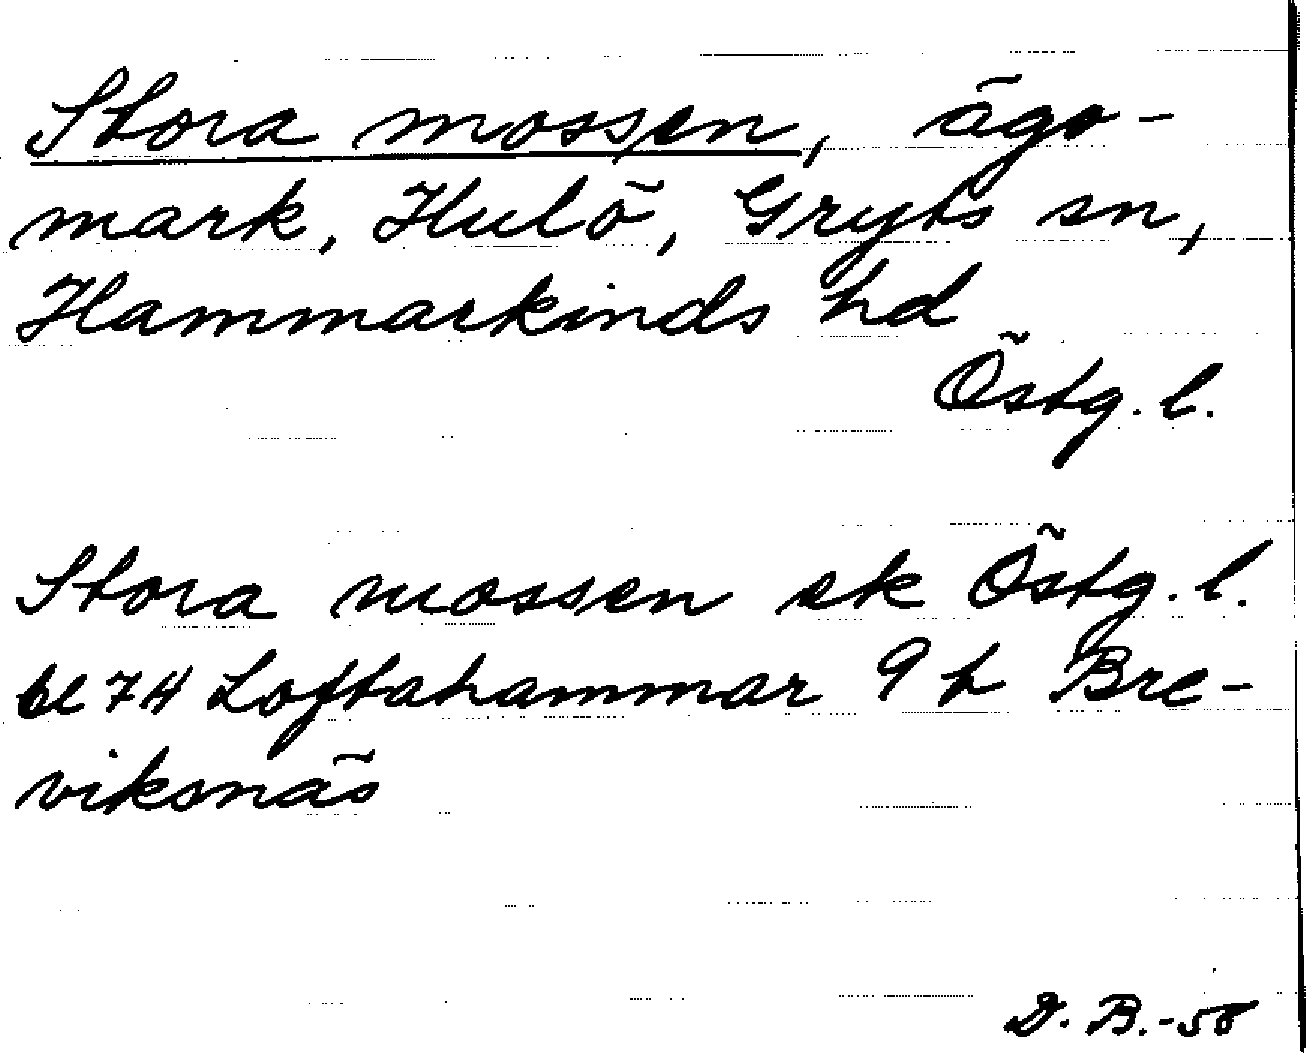 Stora mossen, ägo-
mark, Hulö, Gryts sn,
Hammarkinds hd
Östg. l.
Stora mossen ek Östg. l.
bl 7H Loftahammar 9 h Bre-
viksnäs
D. B.-58